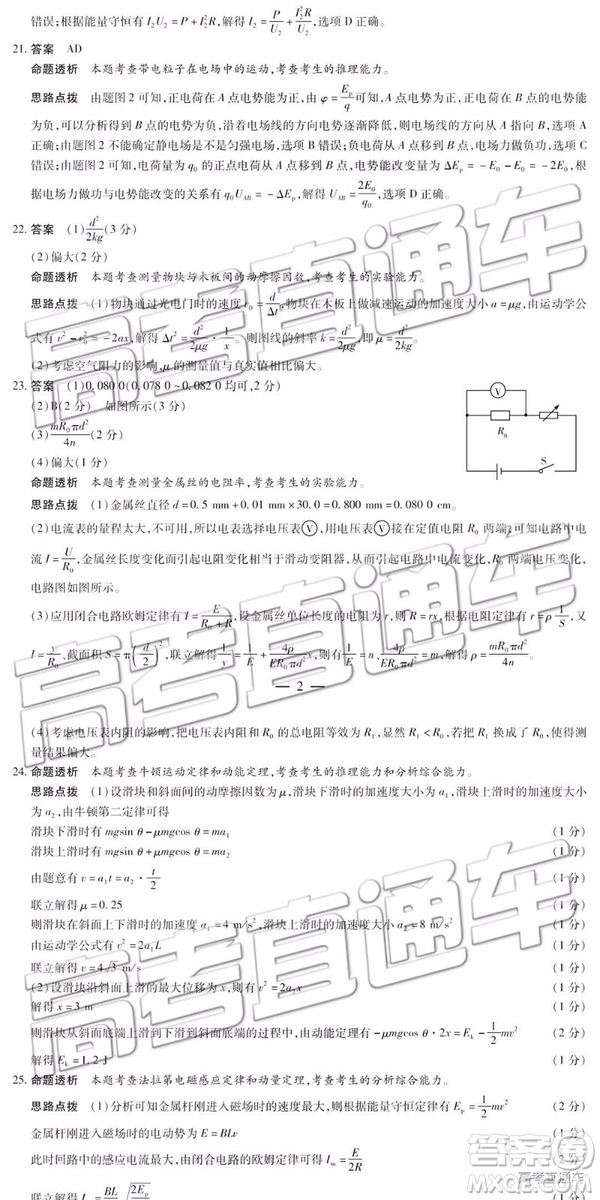 错误;根据能量守恒有 I₂U₂ = P + I₂²R,解得 I₂ = P/U₂ + I₂²R/U₂,选项 D 正确。
21. 答案 AD
命题透析 本题考查带电粒子在电场中的运动,考查考生的推理能力。
思路点拨 由题图 2 可知,正电荷在 A 点电势能为正,由 φ = Eₚ/q 可知,A 点电势为正,正电荷在 B 点的电势能
为负,可以分析得到 B 点的电势为负,沿着电场线的方向电势逐渐降低,则电场线的方向从 A 指向 B,选项 A
正确;由题图 2 不能确定静电场是不是匀强电场,选项 B 错误;负电荷从 A 点移到 B 点,电场力做负功,选项 C
错误;由题图 2 可知,电荷量为 q₀ 的正点电荷从 A 点移到 B 点,电势能改变量为 ΔEₚ = -E₀ - E₀ = -2E₀,根
据电场力做功与电势能改变的关系有 q₀U_AB = -ΔEₚ,解得 U_AB = 2E₀/q₀,选项 D 正确。
22. 答案 (1) d²/2kg (3 分)
(2)偏大(2 分)
命题透析 本题考查测量物块与木板间的动摩擦因数,考查考生的实验能力。
思路点拨 (1)物块通过光电门时的速度 v₀ = d/Δt,物块在木板上做减速运动的加速度大小 a = μg,由运动学公
式有 v² - v₀² = -2ax,解得 Δt² = d²/2μg · 1/x。则图线的斜率 k = d²/2μg,即 μ = d²/2kg。
(2)考虑空气阻力的影响,μ 的测量值与真实值相比偏大。
23. 答案 (1)0.080 0(0.078 0 ~ 0.082 0 均可,2 分)
(2)B(2 分) 如图所示(3 分)
(3) mR₀πd²/4n (2 分)
(4)偏大(1 分)
V
R₀
S
命题透析 本题考查测量金属丝的电阻率,考查考生的实验能力。
思路点拨 (1)金属丝直径 d = 0.5 mm + 0.01 mm × 30.0 = 0.800 mm = 0.080 0 cm。
(2)电流表的量程太大,不可用,所以电表选择电压表Ⓥ,用电压表Ⓥ接在定值电阻 R₀ 两端,可知电路中电
流 I = U/R₀,金属丝长度变化而引起电阻变化相当于滑动变阻器,从而引起电路中电流变化,R₀ 两端电压变化,
电路图如图所示。
(3)应用闭合电路欧姆定律有 I = E/(R₀ + R),设金属丝单位长度的电阻为 r,则 R = rx,根据电阻定律有 r = ρ 1/S,又
I = v/R₀、截面积 S = π(d/2)²,联立解得 1/v = 1/E + 4ρ/(ER₀πd²) x,则有 1/E = n、4ρ/(ER₀πd²) = m,解得 ρ = mR₀πd²/4n。
— 2 —
(4)考虑电压表内阻的影响,把电压表内阻和 R₀ 的总电阻等效为 R₁,显然 R₁ < R₀,若把 R₁ 换成了 R₀,使得测
量结果偏大。
24. 命题透析 本题考查牛顿运动定律和动能定理,考查考生的推理能力和分析综合能力。
思路点拨 (1)设滑块和斜面间的动摩擦因数为 μ,滑块下滑时的加速度大小为 a₁,滑块上滑时的加速度大小
为 a₂,由牛顿第二定律可得
滑块下滑时有 mgsin θ - μmgcos θ = ma₁ (1 分)
滑块上滑时有 mgsin θ + μmgcos θ = ma₂ (1 分)
由题意有 v = a₁t = a₂ · t/2 (1 分)
联立解得 μ = 0.25 (1 分)
则滑块在斜面上下滑时的加速度 a₁ = 4 m/s²,滑块上滑时的加速度大小 a₂ = 8 m/s² (1 分)
由运动学公式有 v² = 2a₁L (1 分)
联立解得 v = 4√3 m/s (1 分)
(2)设滑块沿斜面上滑的最大位移为 x,则有 v² = 2a₂x (1 分)
解得 x = 3 m (1 分)
则滑块从斜面底端上滑到下滑到斜面底端的过程中,由动能定理有 -μmgcos θ · 2x = Eₖ - 1/2 mv² (2 分)
解得 Eₖ = 1.2 J (1 分)
25. 命题透析 本题考查法拉第电磁感应定律和动量定理,考查考生的分析综合能力。
思路点拨 (1)分析可知金属杆刚进入磁场时的速度最大,则根据能量守恒定律有 Eₚ = 1/2 mv² (2 分)
金属杆刚进入磁场时的电动势为 E = BLv (1 分)
此时回路中的感应电流最大,由闭合电路的欧姆定律可得 Iₘ = E/2R (2 分)
联立解得 Iₘ = BL/2R √(2Eₚ/m) (1 分)
高考直通车
高考直通车
高考直通车
答案圈
高考直通车